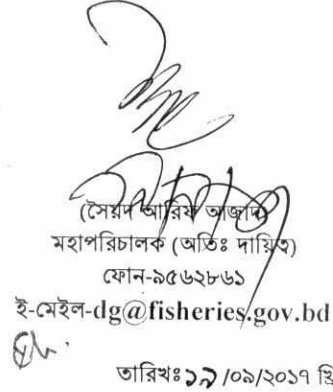 (সৈয়দ আরিফ আজাদ)
মহাপরিচালক (অতিঃ দায়িত্ব)
ফোন-৯৫৬২৮৬১
ই-মেইল-dg@fisheries.gov.bd
তারিখঃ১৯/০৯/২০১৭ খ্রি